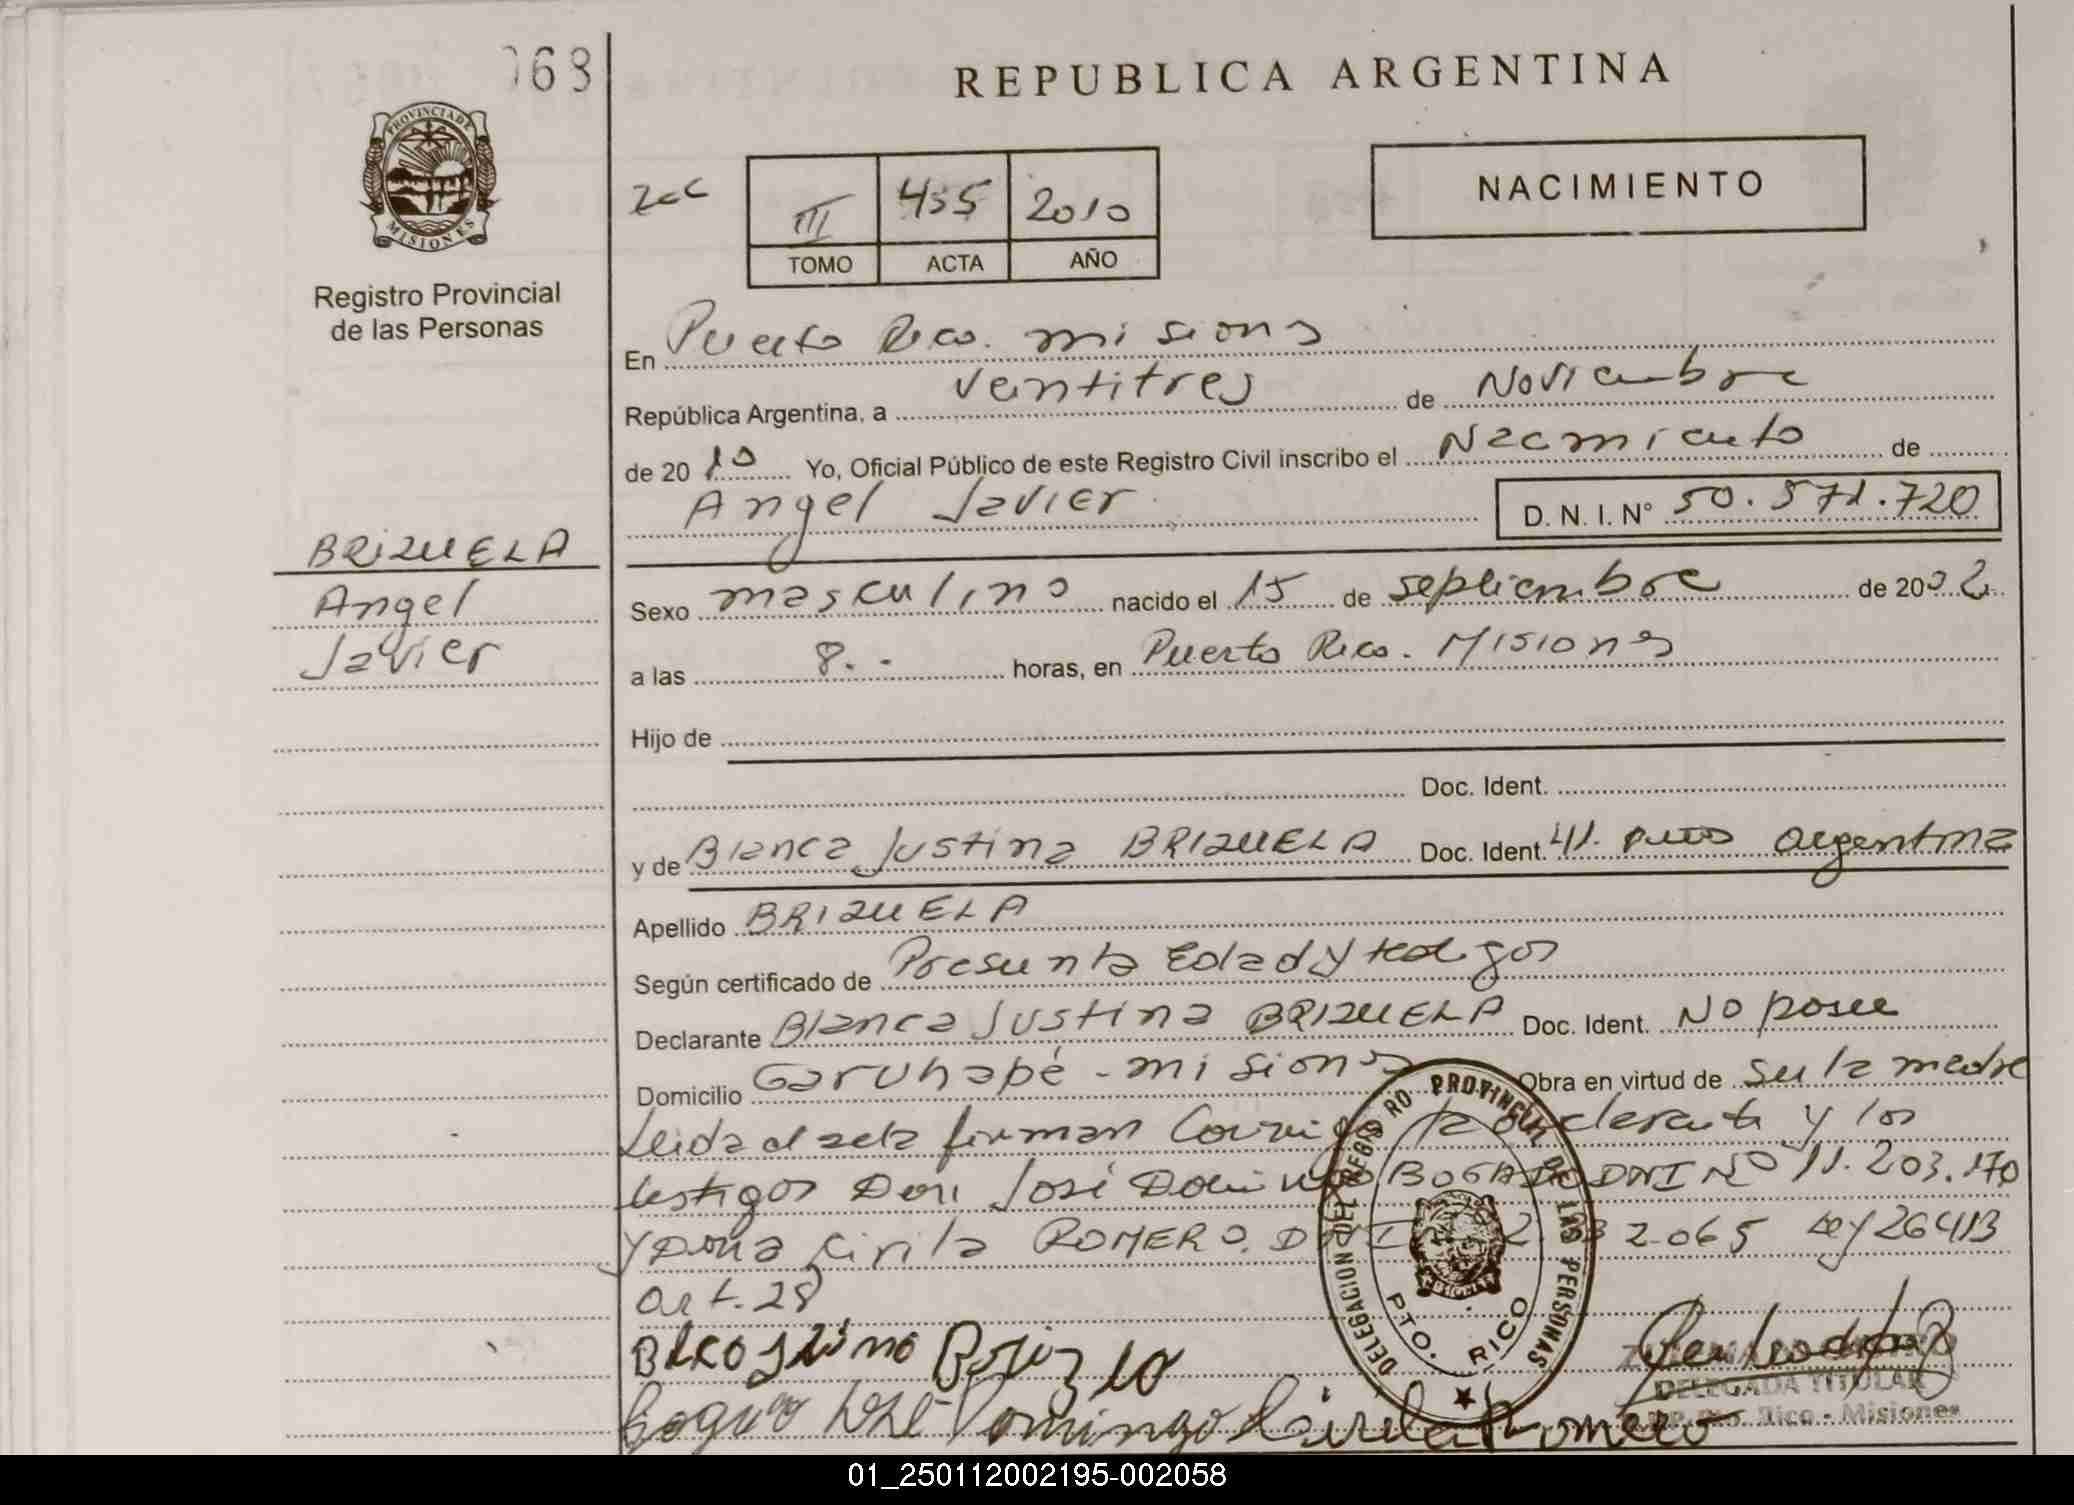 068
REPUBLICA ARGENTINA
PROVINCIA DE
MISIONES
Registro Provincial
de las Personas
III 455 2010
TOMO ACTA AÑO
NACIMIENTO
En Puerto Rico. misiones
República Argentina, a ventitres de Noviembre
de 2010 Yo, Oficial Público de este Registro Civil inscribo el Nacimiento de
Angel Javier D. N. I. N° 50.571.720
BRIZUELA
Angel
Javier
Sexo masculino nacido el 15 de septiembre de 2002
a las 8. horas, en Puerto Rico. Misiones
Hijo de
Doc. Ident.
y de Blanca Justina BRIZUELA Doc. Ident. argentina
Apellido BRIZUELA
Según certificado de Presunta Edad y testigos
Declarante Blanca Justina BRIZUELA Doc. Ident. No posee
Domicilio Garuhapé - misiones Obra en virtud de ser la madre
Leida el acta firman conmigo la declarante y los
testigos Don José Domingo BOGADO DNI Nº 11.203.170
y Doña Cirila ROMERO. DNI 2.065 Ley 26413
art. 28
DELEGACION DEL REGISTRO PROVINCIAL DE LAS PERSONAS
PTO. RICO
DELEGADA TITULAR
Pto. Rico - Misiones
Domingo Cirila Romero
01_250112002195-002058